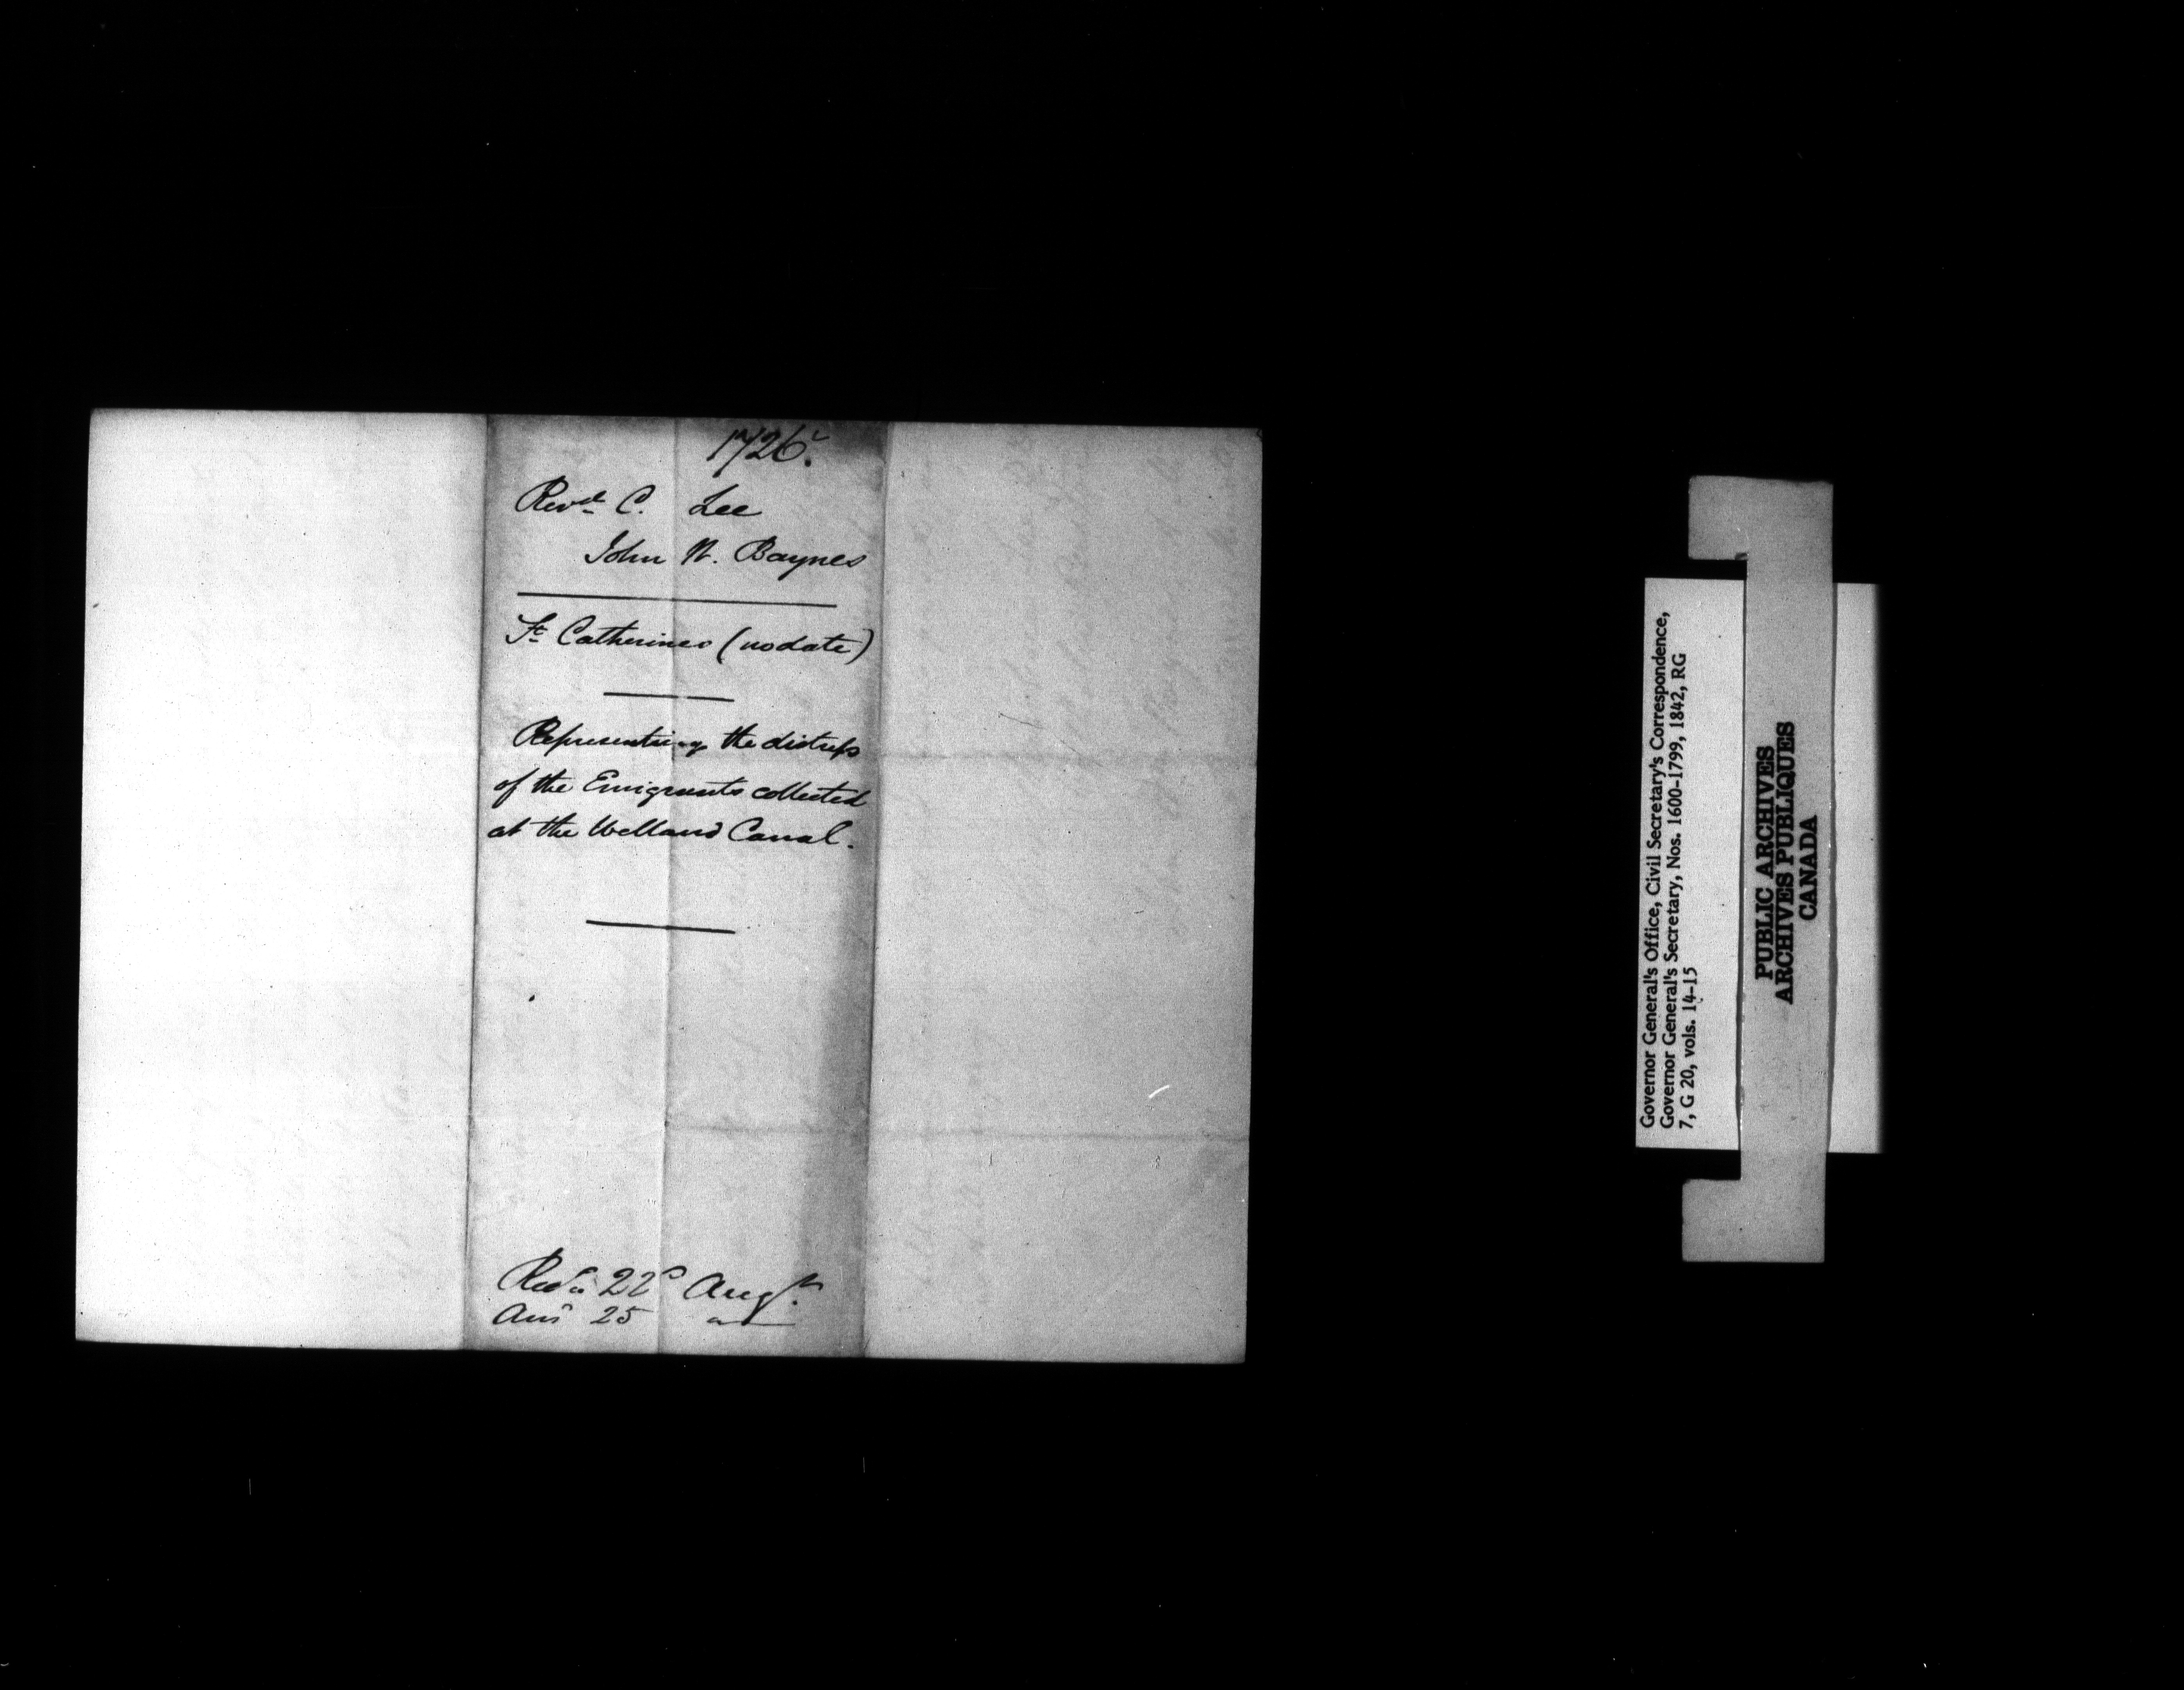 1726.
Revd C. Lee
John W. Baynes
St Catherines (no date)
Representing the distress
of the Emigrants collected
at the Welland Canal.
Recd 22d Augt.
Ansd 25
Governor General's Office, Civil Secretary's Correspondence,
Governor General's Secretary, Nos. 1600-1799, 1842, RG
7, G 20, vols. 14-15
PUBLIC ARCHIVES
ARCHIVES PUBLIQUES
CANADA